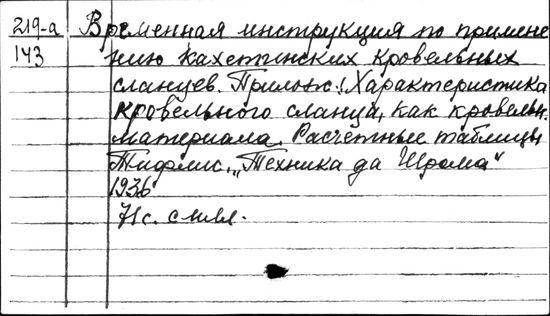 219-а Временная инструкция по примене
143 нию кахетинских кровельных
сланцев. Прилож.: Характеристика
кровельного сланца, как кровельн.
материала. Расчетные таблицы
Тифлис, „Техника да Шрома"
1936
71с. с илл.